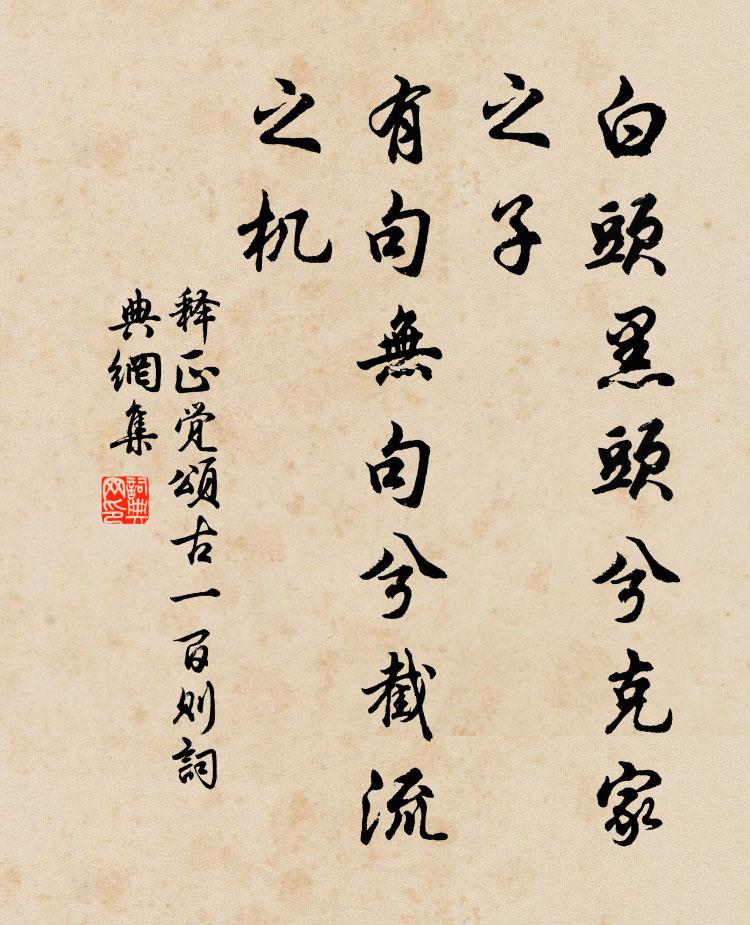 白頭黑頭兮克家
之子
有句無句兮截流
之机
释正觉頌古一百则詞
典網集
詞典网印